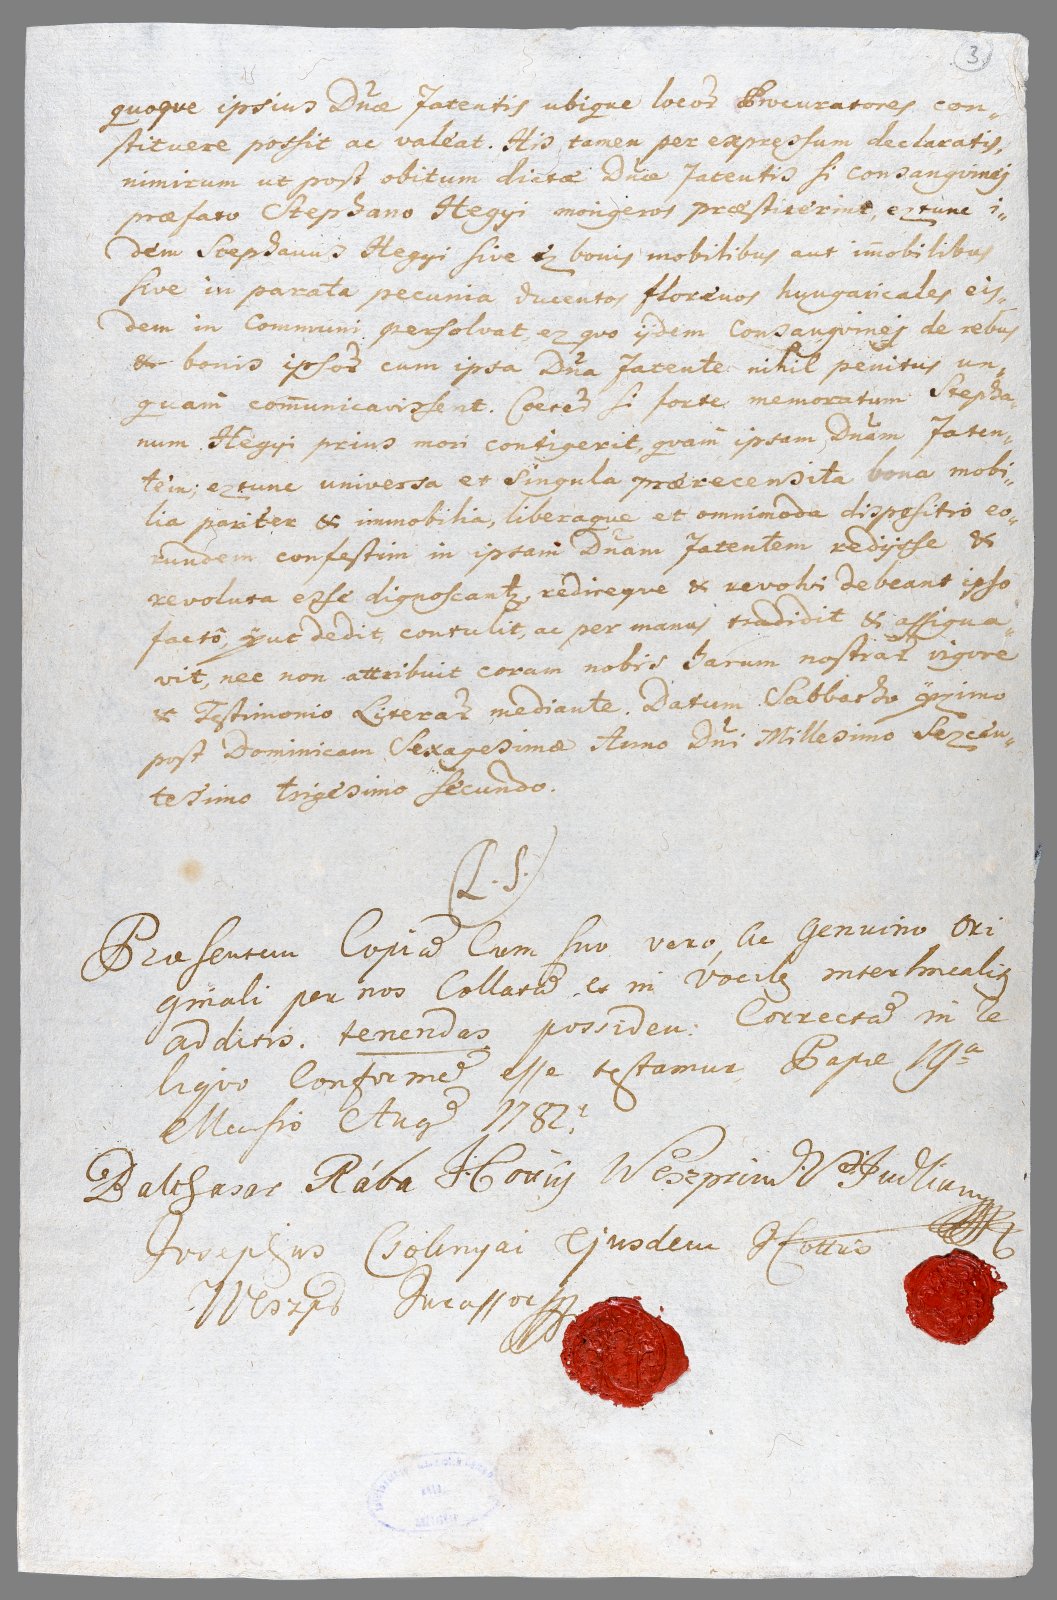 3
quoque ipsius Dnae Fatentis ubique locor Procuratores con-
stituere possit ac valeat. His tamen per expressum declaratis,
nimirum ut post obitum dictae Dnae Fatentis si Consangvinej
praefato Stephano Hegyi morigeros praestiterint, extunc i-
dem Stephanus Hegyi sive ex bonis mobilibus aut imobilibus
sive in parata pecunia ducentos florenos hungaricales eis-
dem in Communi persolvat, ex quo ijdem Consangvinej de rebus
& bonis ipsor cum ipsa Dna Fatente nihil penitus un-
quam comunicavissent. Coeter si forte memoratum Stepha-
num Hegyi prius mori contigerit, quam ipsam Dnam Faten-
tem; extunc universa et singula praerecensita bona mobi-
lia pariter & immobilia, liberaque et omnimoda dispositio eo-
rundem confestim in ipsam Dnam Fatentem redijsse &
revoluta esse dignoscant, redireque & revolvi debeant ipso
facto, put dedit, contulit, ac per manus tradidit & assigna-
vit, nec non attribuit coram nobis harum nostrar vigore
& Testimonio Literar mediante. Datum Sabbatho pximo
post Dominicam Sexagesimae Anno Dni Millesimo Sexcen-
tesimo trigesimo secundo.
(L. S.)
Praesentem Copia Cum suo vero, ac Genuino Ori
ginali per nos Collata et in Vocib interlinealit
additis. tenendas possiden: Correcta in re
liquo Conforme esse testamur Papae 19a
Mensis Aug 1782.
Balthasar Rába I. Cottus Weszprim Judlium
Josephus Csolnyai Ejusdem I Cottus
Weszp Jurassor